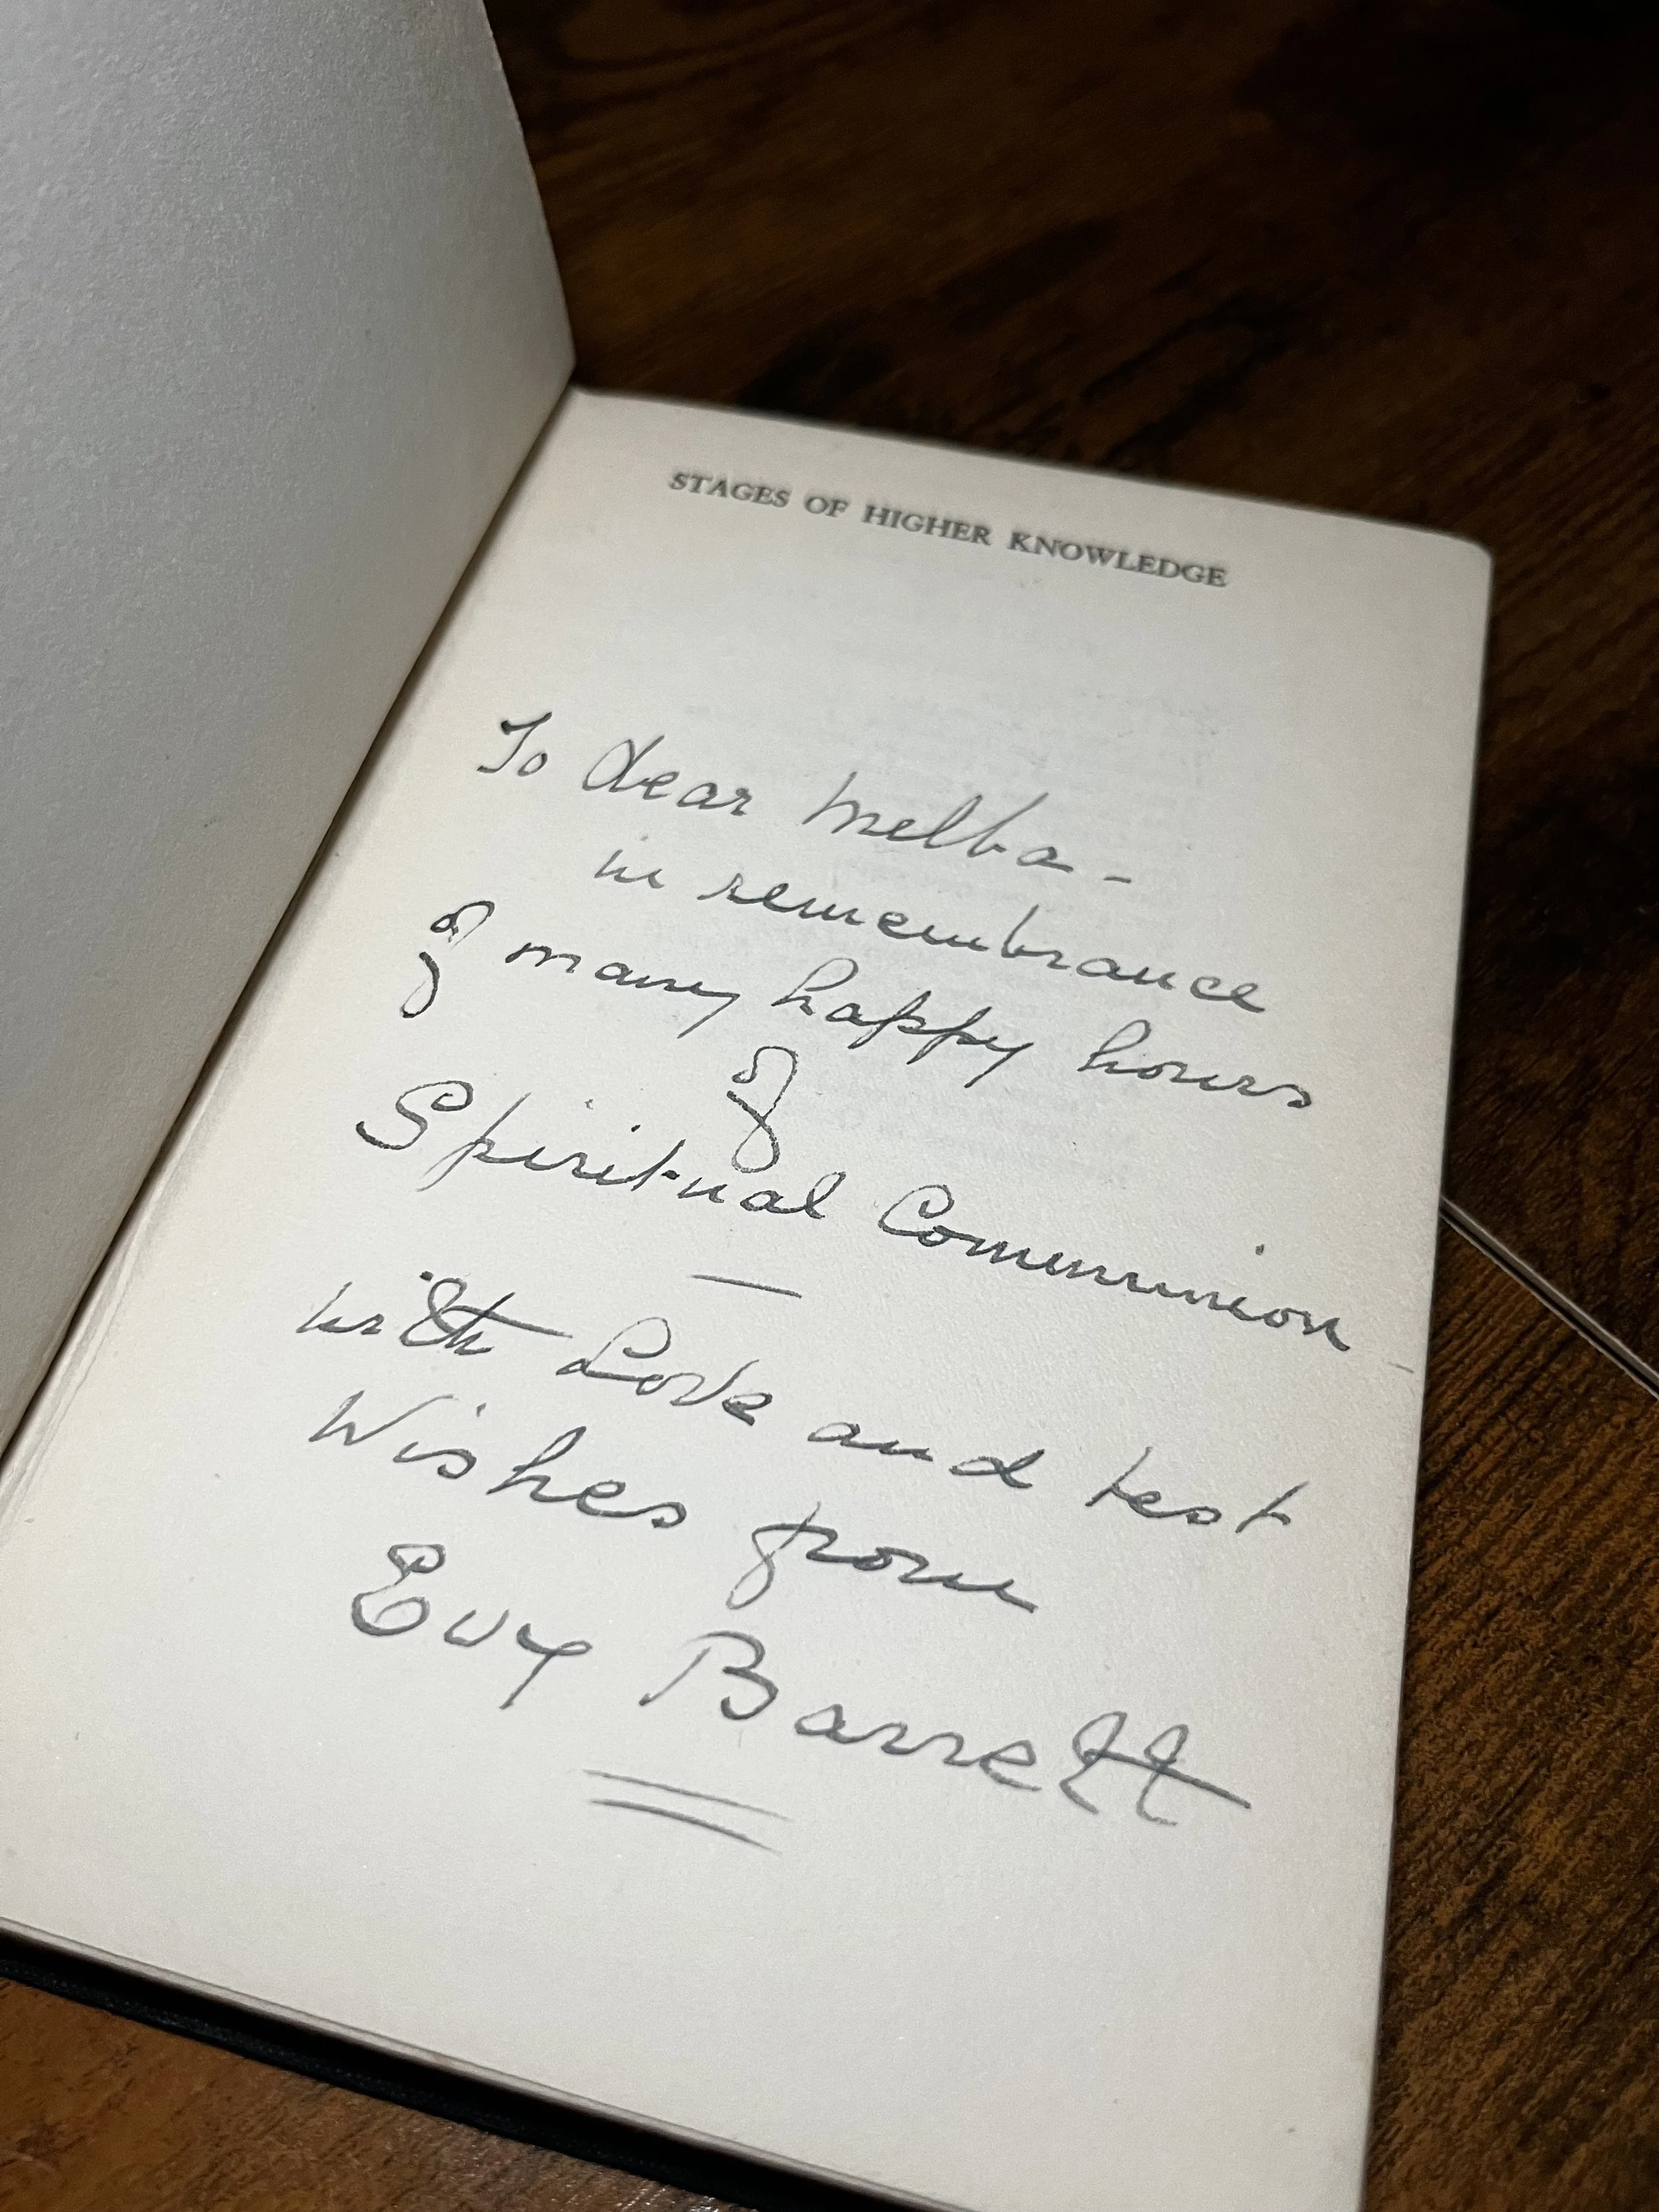 STAGES OF HIGHER KNOWLEDGE
To dear Melba -
in remembrance
of many happy hours
of
Spiritual Communion -
with Love and best
Wishes from
Evy Barrett